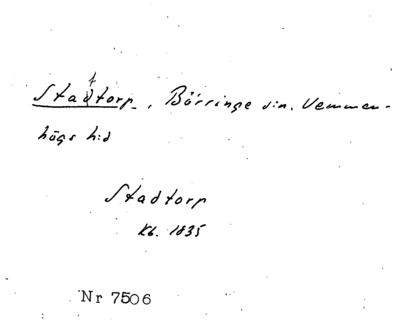 t
Stadtorp, Börringe sn. Vemmen-
högs hd
Stadtorp
Kb. 1835
Nr 7506